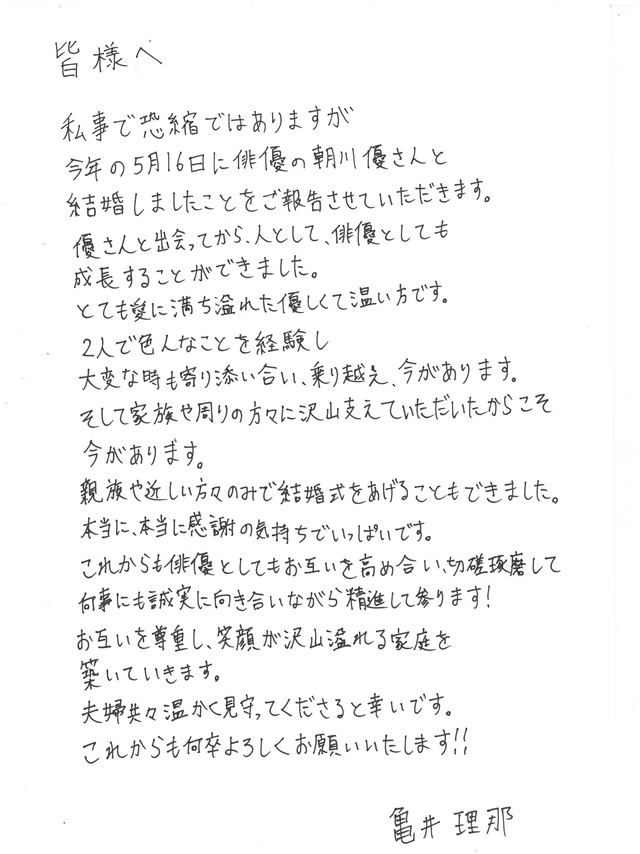 皆様へ
私事で恐縮ではありますが
今年の5月16日に俳優の朝川優さんと
結婚しましたことをご報告させていただきます。
優さんと出会ってから、人として、俳優としても
成長することができました。
とても愛に満ち溢れた優しくて温い方です。
2人で色んなことを経験し
大変な時も寄り添い合い、乗り越え、今があります。
そして家族や周りの方々に沢山支えていただいたからこそ
今があります。
親族や近しい方々のみで結婚式をあげることもできました。
本当に、本当に感謝の気持ちでいっぱいです。
これからも俳優としてもお互いを高め合い、切磋琢磨して
何事にも誠実に向き合いながら精進して参ります!
お互いを尊重し、笑顔が沢山溢れる家庭を
築いていきます。
夫婦共々温かく見守ってくださると幸いです。
これからも何卒よろしくお願いいたします!!
亀井理那